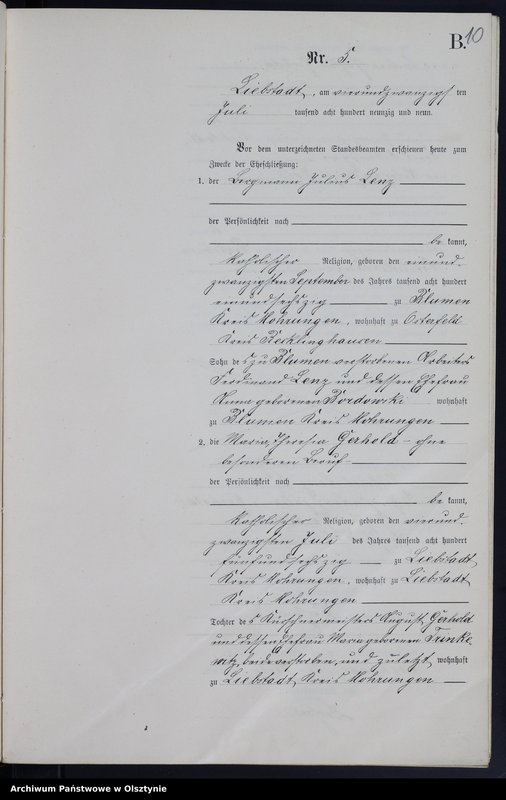 B. 10
Nr. 5.
Liebstadt, am vierundzwanzigsten
Juli tausend acht hundert neunzig und neun.
Vor dem unterzeichneten Standesbeamten erschienen heute zum
Zwecke der Eheschließung:
1. der Bergmann Julius Lenz
der Persönlichkeit nach
be kannt,
katholischer Religion, geboren den einund-
zwanzigsten September des Jahres tausend acht hundert
einundsechszig zu Blumen
Kreis Mohrungen, wohnhaft zu Osterfeld
Kreis Recklinghausen
Sohn des zu Blumen verstorbenen Arbeiters
Ferdinand Lenz und dessen Ehefrau
Anna geborenen Bordowski wohnhaft
zu Blumen Kreis Mohrungen
2. die Maria Theresia Gerhold - ohne
besonderen Beruf
der Persönlichkeit nach
be kannt,
katholischer Religion, geboren den vierund-
zwanzigsten Juli des Jahres tausend acht hundert
fünfundsechszig zu Liebstadt,
Kreis Mohrungen, wohnhaft zu Liebstadt,
Kreis Mohrungen
Tochter des Kürschnermeisters August Gerhold
und dessen Ehefrau Maria geborenen
beide verstorben, und zuletzt wohnhaft
zu Liebstadt, Kreis Mohrungen
Archiwum Państwowe w Olsztynie